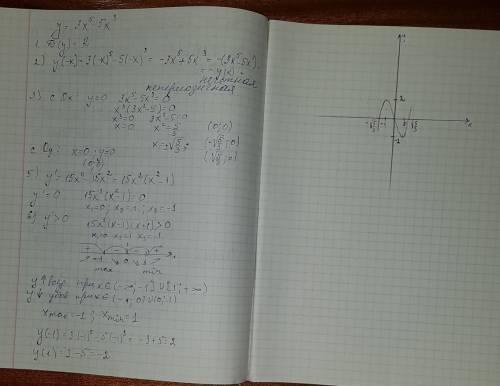 y = 3x⁵-5x³
1. D(y) = R
2) y(-x) = 3(-x)⁵-5(-x)³ = -3x⁵+5x³ = -(3x⁵-5x³)
= -y(x) - нечетная
непериодическая
3) с Ox: y=0 3x⁵-5x³=0
x³(3x²-5)=0
x³=0 3x²-5=0
x=0 x²=5/3 (0;0)
x=±√5/3; (-√5/3;0)
(√5/3;0)
с Oy: x=0; y=0
(0;0)
5) y'=15x⁴-15x²=15x²(x²-1)
y'=0 15x²(x²-1)=0
x₁=0; x₂=1; x₃=-1
6) y'>0 15x²(x-1)(x+1)>0
+ - - +
-1 0 1 x
max min
y↑ возр. при x∈(-∞;-1]∪[1;+∞)
y↓ убыв при x∈(-1;0)∪(0;1)
xmax=-1; xmin=1
y(-1)=3(-1)⁵-5(-1)³=-3+5=2
y(1)=3-5=-2
y
2
-√5/3 √5/3 x